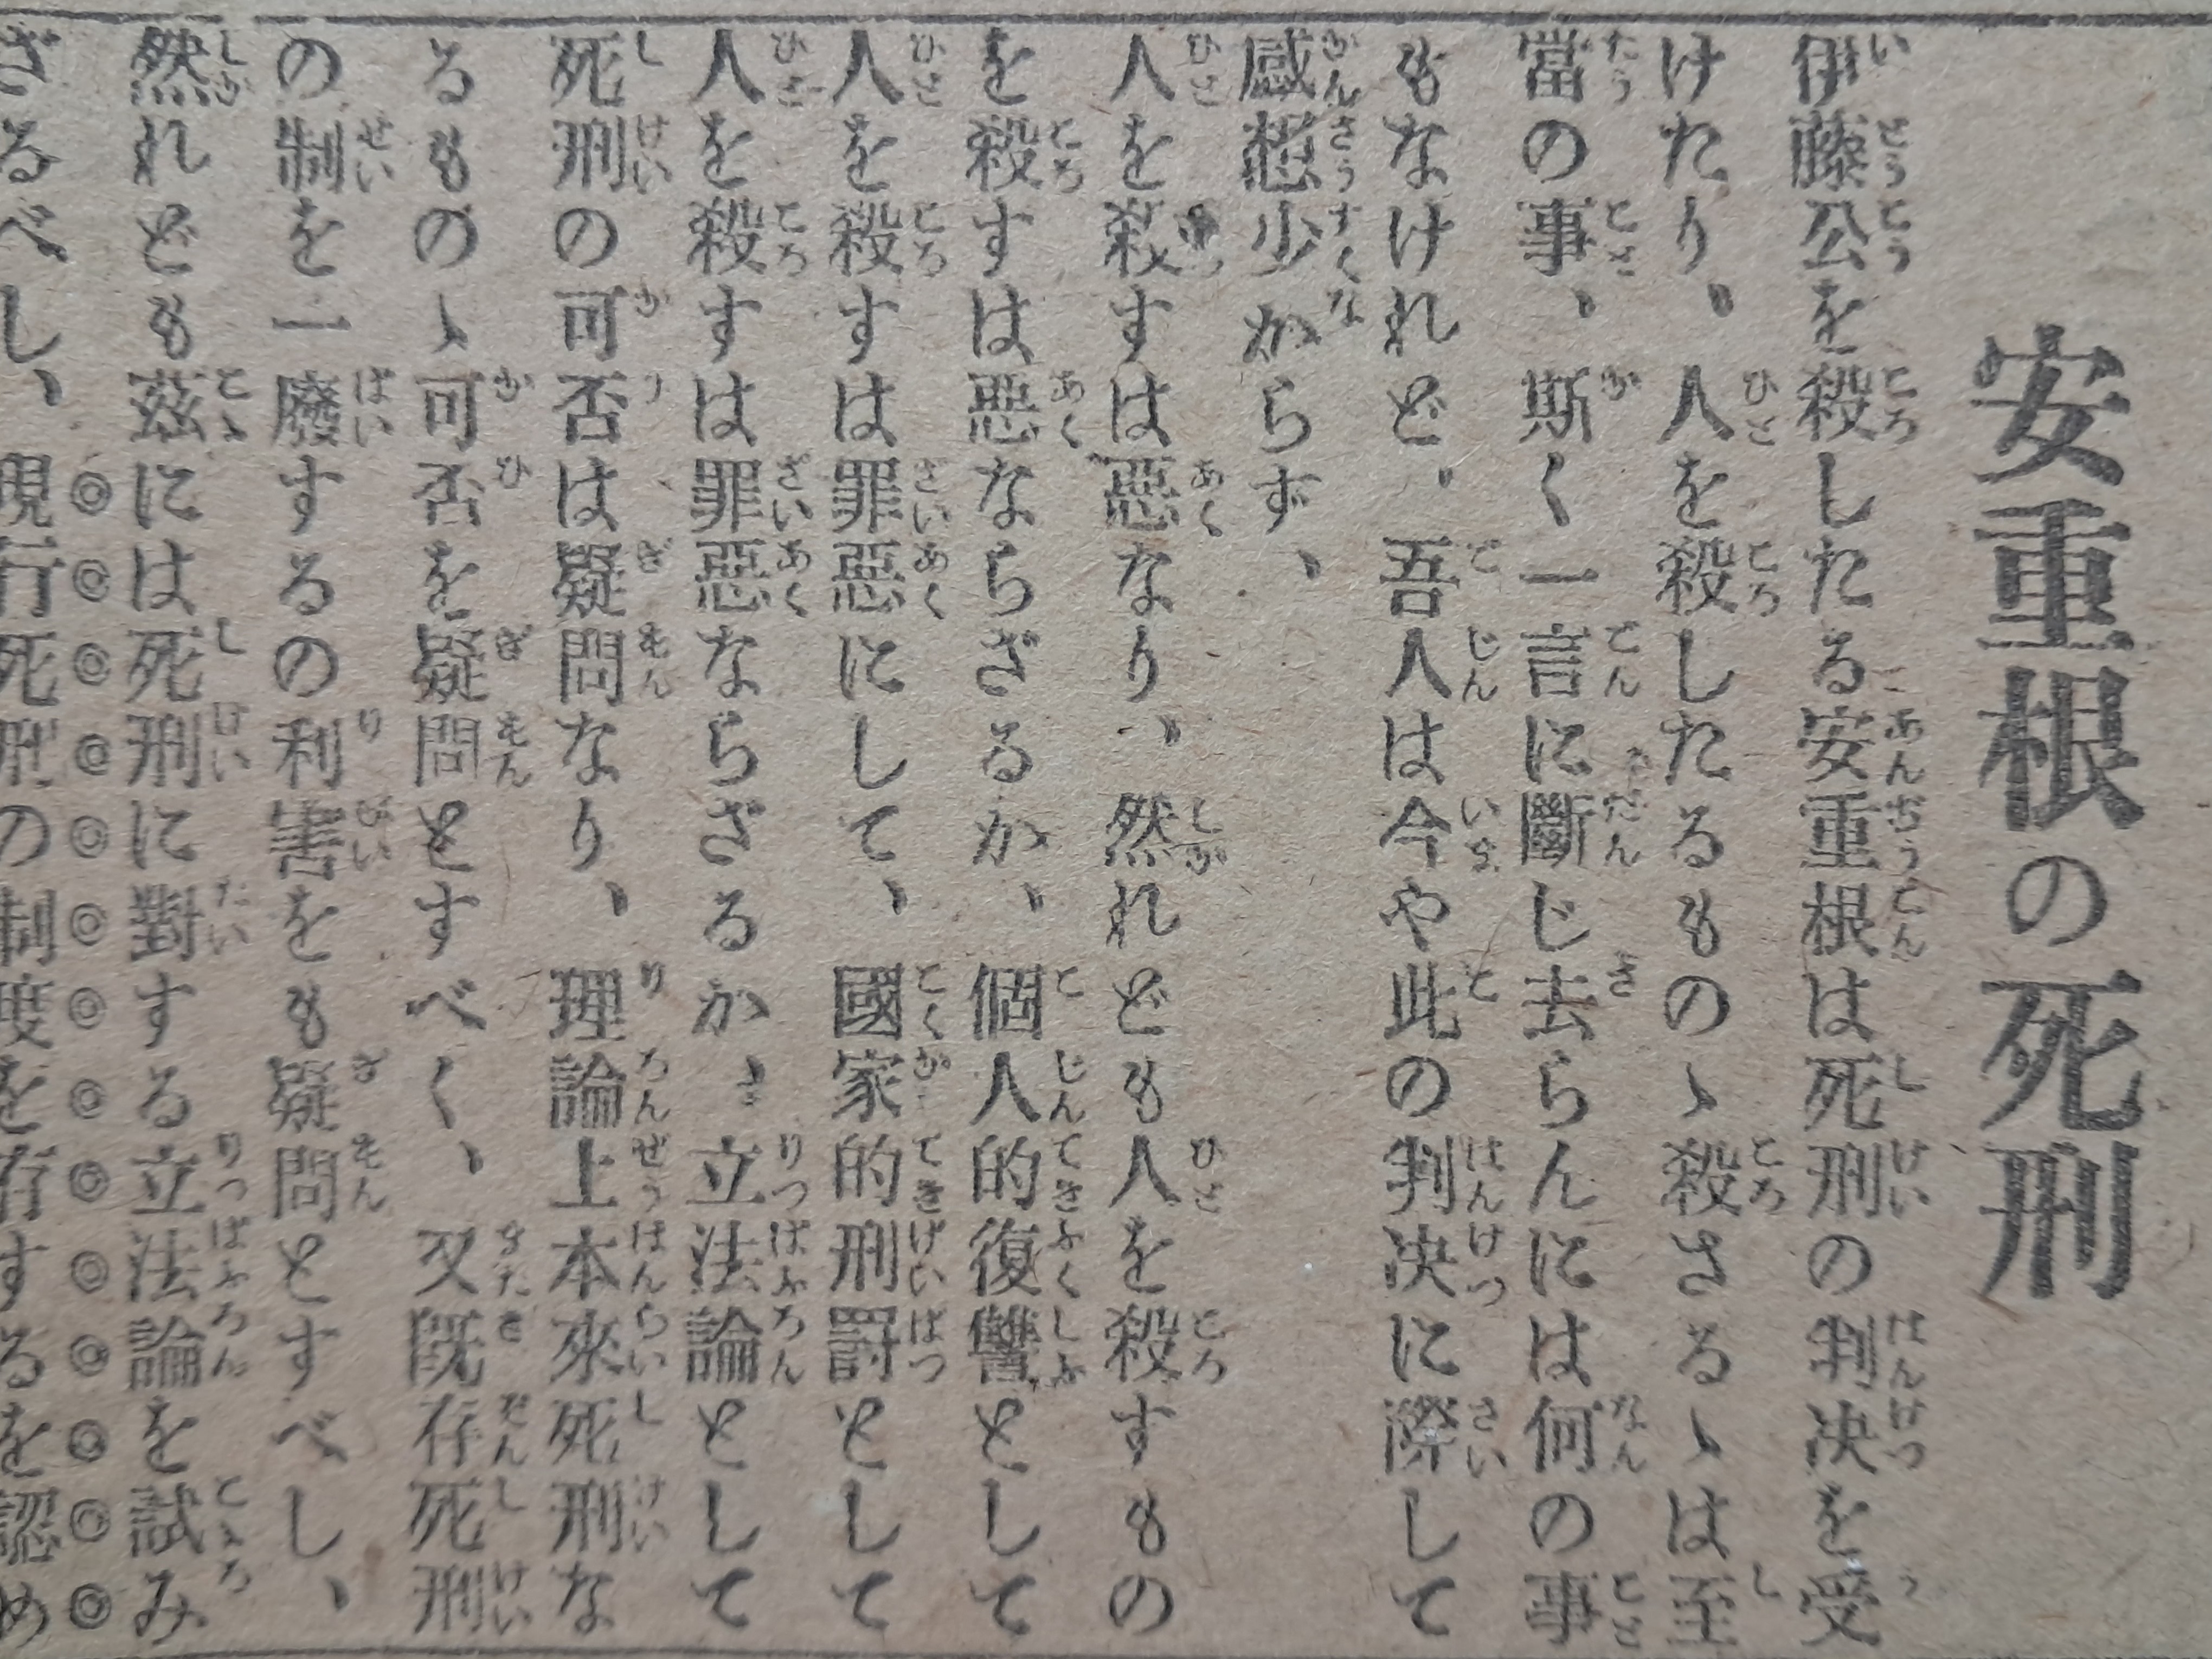 安重根の死刑
伊藤公を殺したる安重根は死刑の判决を受
けたり、人を殺したるものゝ殺さるゝは至
當の事、斯く一言に斷じ去らんには何の事
もなけれど、吾人は今や此の判决に際して
感想少からず、
人を殺すは惡なり、然れども人を殺すもの
を殺すは惡ならざるか、個人的復讐として
人を殺すは罪惡にして、國家的刑罰として
人を殺すは罪惡ならざるか、立法論として
死刑の可否は疑問なり、理論上本來死刑な
るものゝ可否を疑問とすべく、又既存死刑
の制を一廢するの利害をも疑問とすべし、
然れども茲には死刑に對する立法論を試み
ざるべし、現行死刑の制度を存するを認め